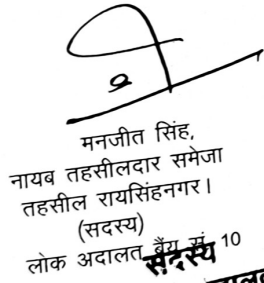 मनजीत सिंह,
नायब तहसीलदार समेजा
तहसील रायसिंहनगर।
(सदस्य)
लोक अदालत बैंच सं. 10
सदस्य